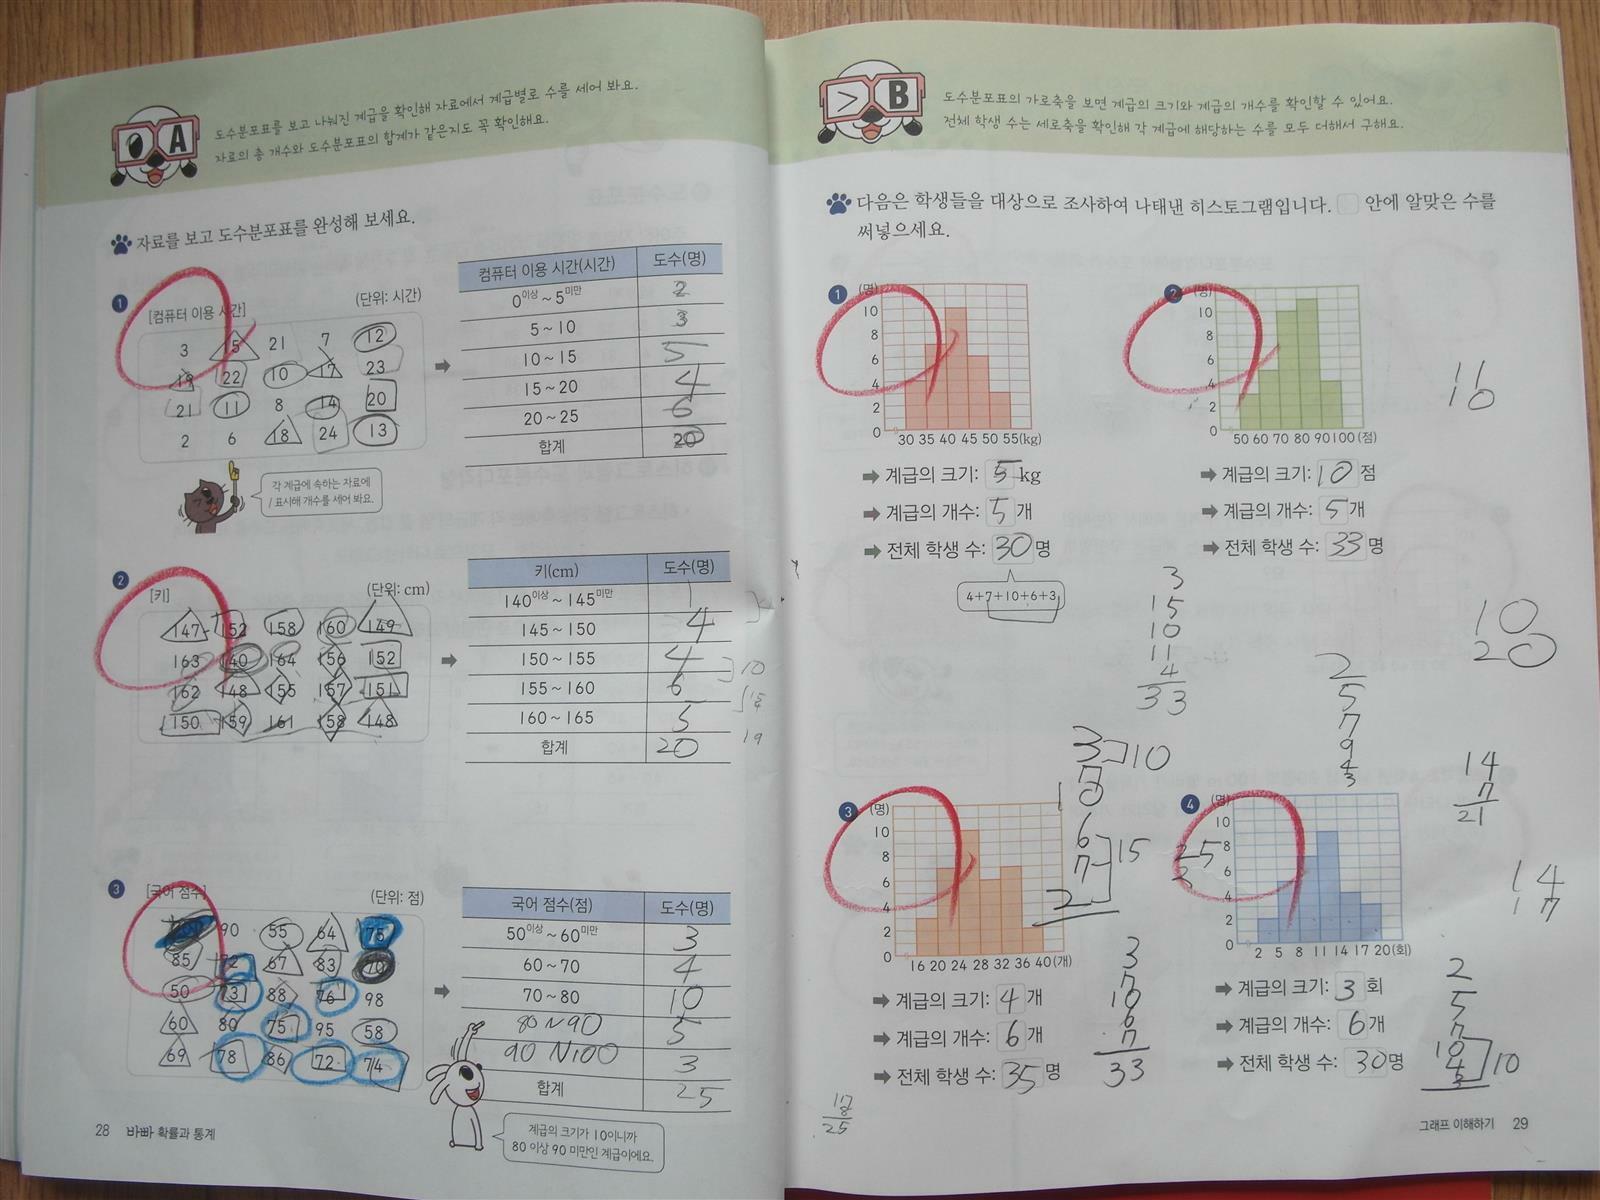 A
도수분포표를 보고 나눠진 계급을 확인해 자료에서 계급별로 수를 세어 봐요.
자료의 총 개수와 도수분포표의 합계가 같은지도 꼭 확인해요.
자료를 보고 도수분포표를 완성해 보세요.
1
[컴퓨터 이용 시간] (단위: 시간)
3 15 21 7 12
19 22 10 17 23
21 11 8 14 20
2 6 18 24 13
컴퓨터 이용 시간(시간) 도수(명)
0이상 ~ 5미만 2
5 ~ 10 3
10 ~ 15 5
15 ~ 20 4
20 ~ 25 6
합계 20
각 계급에 속하는 자료에
/ 표시해 개수를 세어 봐요.
2
[키] (단위: cm)
147 152 158 160 149
163 140 164 156 152
162 148 155 157 151
150 159 161 158 148
키(cm) 도수(명)
140이상 ~ 145미만 1
145 ~ 150 4
150 ~ 155 4
155 ~ 160 6
160 ~ 165 5
합계 20
10
19
3
[국어 점수] (단위: 점)
90 55 64 75
85 72 67 83 70
50 73 88 76 98
60 80 75 95 58
69 78 86 72 74
국어 점수(점) 도수(명)
50이상 ~ 60미만 3
60 ~ 70 4
70 ~ 80 10
80 ~ 90 5
90 ~ 100 3
합계 25
계급의 크기가 10이니까
80 이상 90 미만인 계급이에요.
28 바빠 확률과 통계
B
도수분포표의 가로축을 보면 계급의 크기와 계급의 개수를 확인할 수 있어요.
전체 학생 수는 세로축을 확인해 각 계급에 해당하는 수를 모두 더해서 구해요.
다음은 학생들을 대상으로 조사하여 나타낸 히스토그램입니다. 안에 알맞은 수를
써넣으세요.
1
(명)
10
8
6
4
2
0
30 35 40 45 50 55(kg)
계급의 크기: 5 kg
계급의 개수: 5 개
전체 학생 수: 30 명
4+7+10+6+3
2
(명)
10
8
6
4
2
0
50 60 70 80 90 100 (점)
계급의 크기: 10 점
계급의 개수: 5 개
전체 학생 수: 33 명
11
10
3
15
10
11
4
33
10
20
2
5
7
9
4
3
14
7
21
14
17
3
7 10
10
6
7 15
2
3
(명)
10
8
6
4
2
0
16 20 24 28 32 36 40(개)
계급의 크기: 4 개
계급의 개수: 6 개
전체 학생 수: 35 명
3
7
10
6
7
33
25
4
(명)
10
8
6
4
2
0
2 5 8 11 14 17 20(회)
계급의 크기: 3 회
계급의 개수: 6 개
전체 학생 수: 30 명
25
2
5
7
10
4 10
3
그래프 이해하기 29